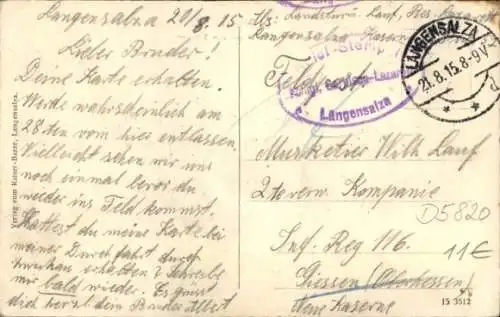 Langensalza 20/8. 15
Lieber Bruder!
Deine Karte erhalten.
Werde wahrscheinlich am
28ten von hier entlassen.
Vielleicht sehen wir uns
noch einmal bevor du
wieder ins Feld kommst.
Hattest du meine Karte bei
meiner Durchfahrt durch
erhalten? Schreibe
mir bald wieder. Es grüsst
dich herzl. dein Bruder Albert
Verlag vom Kaiser-Bazar, Langensalza.
Abs: Landsturm. Lauf, Res. Lazarett
Langensalza Kaserne
Feldp
Langensalza
LANGENSALZA
21.8.15.8-9V
Musketier Wilh Lauf
2te verw. Kompanie
D5820
Inf. Reg 116.
11€
Giessen (Oberhessen)
Neue Kaserne
15 3512